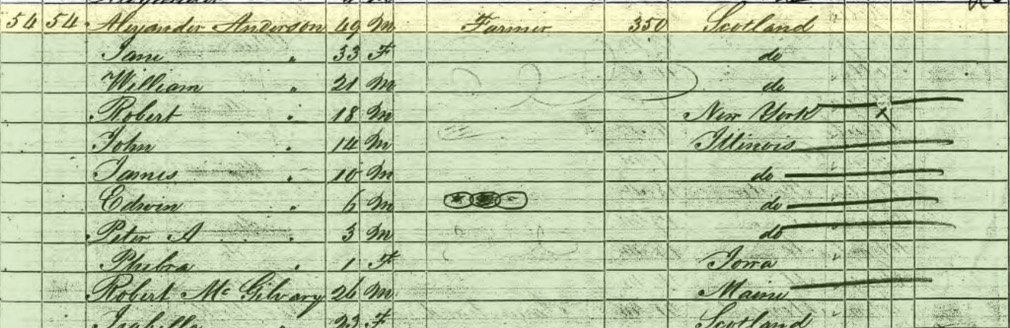 54 54 Alexander Anderson 49 M Farmer 350 Scotland
Jane " 33 F do
William 21 M do
Robert " 18 M New York x
John " 14 M Illinois
James " 10 M do
Edwin " 6 M do
Peter A " 3 M do
Phebra " 1 F Iowa
Robert Mc Gilvary 26 M Maine
Isabella " 23 F Scotland